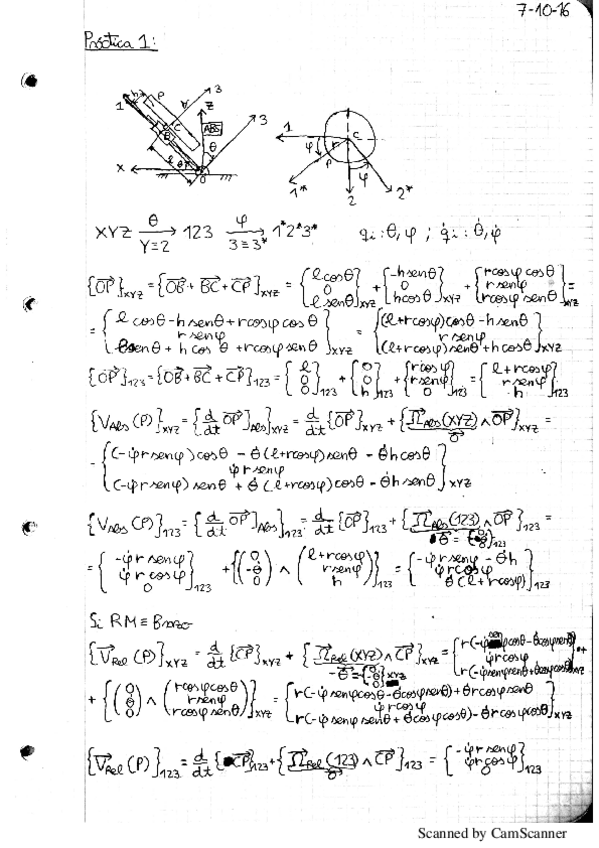 7-10-16
Práctica 1:
1 h P A 3 Z 3
B C ABS θ
X l θ O
1 C φ r P φ
1* 2 2*
XYZ θ→ Y≡2 123 φ→ 3≡3* 1*2*3* qi: θ, φ ; q̇i: θ̇, φ̇
{OP}XYZ = {OB + BC + CP}XYZ = {l cosθ 0 l senθ}XYZ + {-h senθ 0 h cosθ}XYZ + {r cosφ cosθ r senφ r cosφ senθ}XYZ =
= {l cosθ - h senθ + r cosφ cosθ r senφ l senθ + h cosθ + r cosφ senθ}XYZ = {(l+r cosφ) cosθ - h senθ r senφ (l+r cosφ) senθ + h cosθ}XYZ
{OP}123 = {OB + BC + CP}123 = {l 0 0}123 + {0 0 h}123 + {r cosφ r senφ 0}123 = {l + r cosφ r senφ h}123
{VAbs (P)}XYZ = {d/dt OP]Abs}XYZ = d/dt {OP}XYZ + {ΩAbs(XYZ) ∧ OP}XYZ =
0
= {(-φ̇ r senφ) cosθ - θ̇ (l+r cosφ) senθ - θ̇ h cosθ φ̇ r senφ (-φ̇ r senφ) senθ + θ̇ (l+r cosφ) cosθ - θ̇ h senθ}XYZ
{VAbs (P)}123 = {d/dt OP]Abs}123 = d/dt {OP}123 + {ΩAbs(123) ∧ OP}123 =
= {-φ̇ r senφ φ̇ r cosφ 0}123 + {(0 -θ̇ 0) ∧ (l+r cosφ r senφ h)}123 = {-φ̇ r senφ - θ̇ h φ̇ r cosφ θ̇ (l+r cosφ)}123
Si RM ≡ Brazo
{VRel (P)}XYZ = d/dt {CP}XYZ + {ΩRel (XYZ) ∧ CP}XYZ =
+ {(0 θ̇ 0) ∧ (r cosφ cosθ r senφ r cosφ senθ)}XYZ = {r(-φ̇ senφ cosθ - θ̇ cosφ senθ) + θ̇ r cosφ senθ φ̇ r cosφ r(-φ̇ senφ senθ + θ̇ cosφ cosθ) - θ̇ r cosφ cosθ}XYZ
{VRel (P)}123 = d/dt {CP}123 + {ΩRel (123) ∧ CP}123 = {-φ̇ r senφ φ̇ r cosφ 0}123
0
Scanned by CamScanner